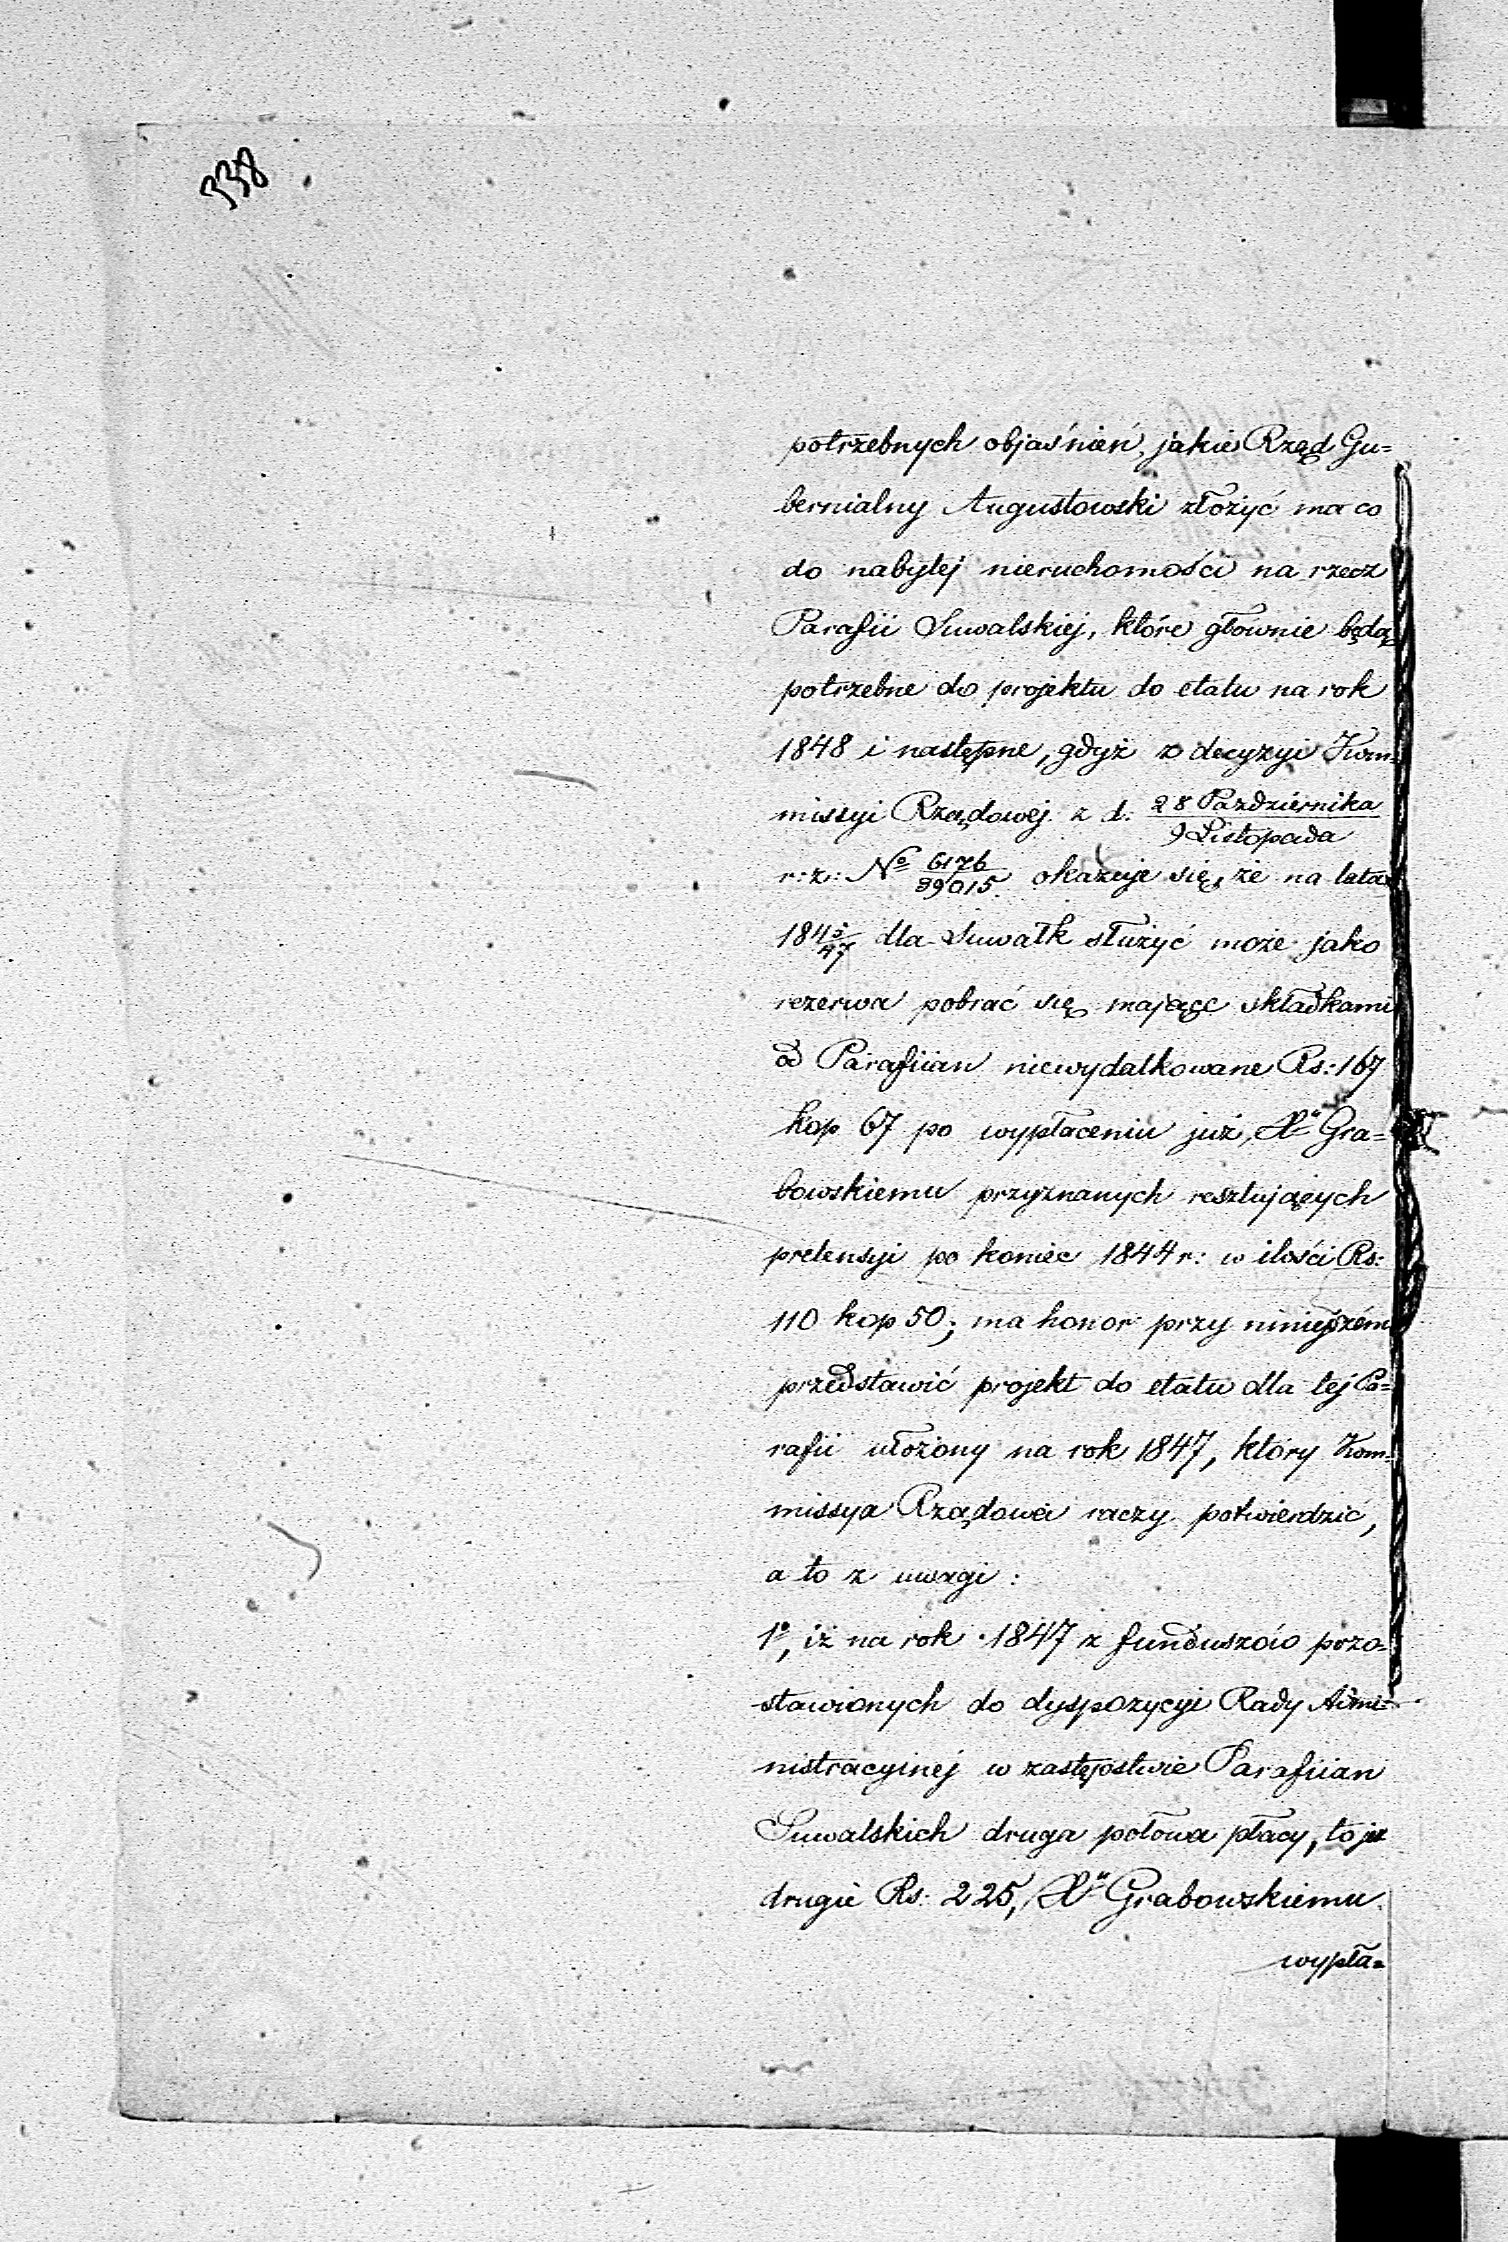 338
potrzebnych objaśnień, jakie Rząd Gu=
bernialny Augustowski złożyć ma co
do nabytej nieruchomości na rzecz
Parafii Suwalskiej, które głównie będą
potrzebne do projektu do etatu na rok
1848 i następne, gdyż z decyzyi Kom=
missyi Rządowej z d. 28 Października / 9 Listopada
r: z: No 6176/89015 okazuje się, że na lata
1845/47 dla Suwałk służyć może jako
rezerwa pobrać się mające składkami
od Parafiian niewydatkowane Rs: 167
kop 67 po wypłaceniu już, Xu Gra=
bowskiemu przyznanych resztujących
pretensyi po koniec 1844 r: w ilości Rs:
110 kop 50; ma honor przy niniejszém
przedstawić projekt do etatu dla tej Pa=
rafii ułożony na rok 1847, który Kom=
missya Rządowa raczy potwierdzić,
a to z uwagi:
1o, iż na rok 1847 z funduszów pozo=
stawionych do dyspozycyi Rady Admi=
nistracyinéj w zastępstwie Parafiian
Suwalskich druga połowa płacy, to jest
drugie Rs: 225, Xu Grabowskiemu
wypła=